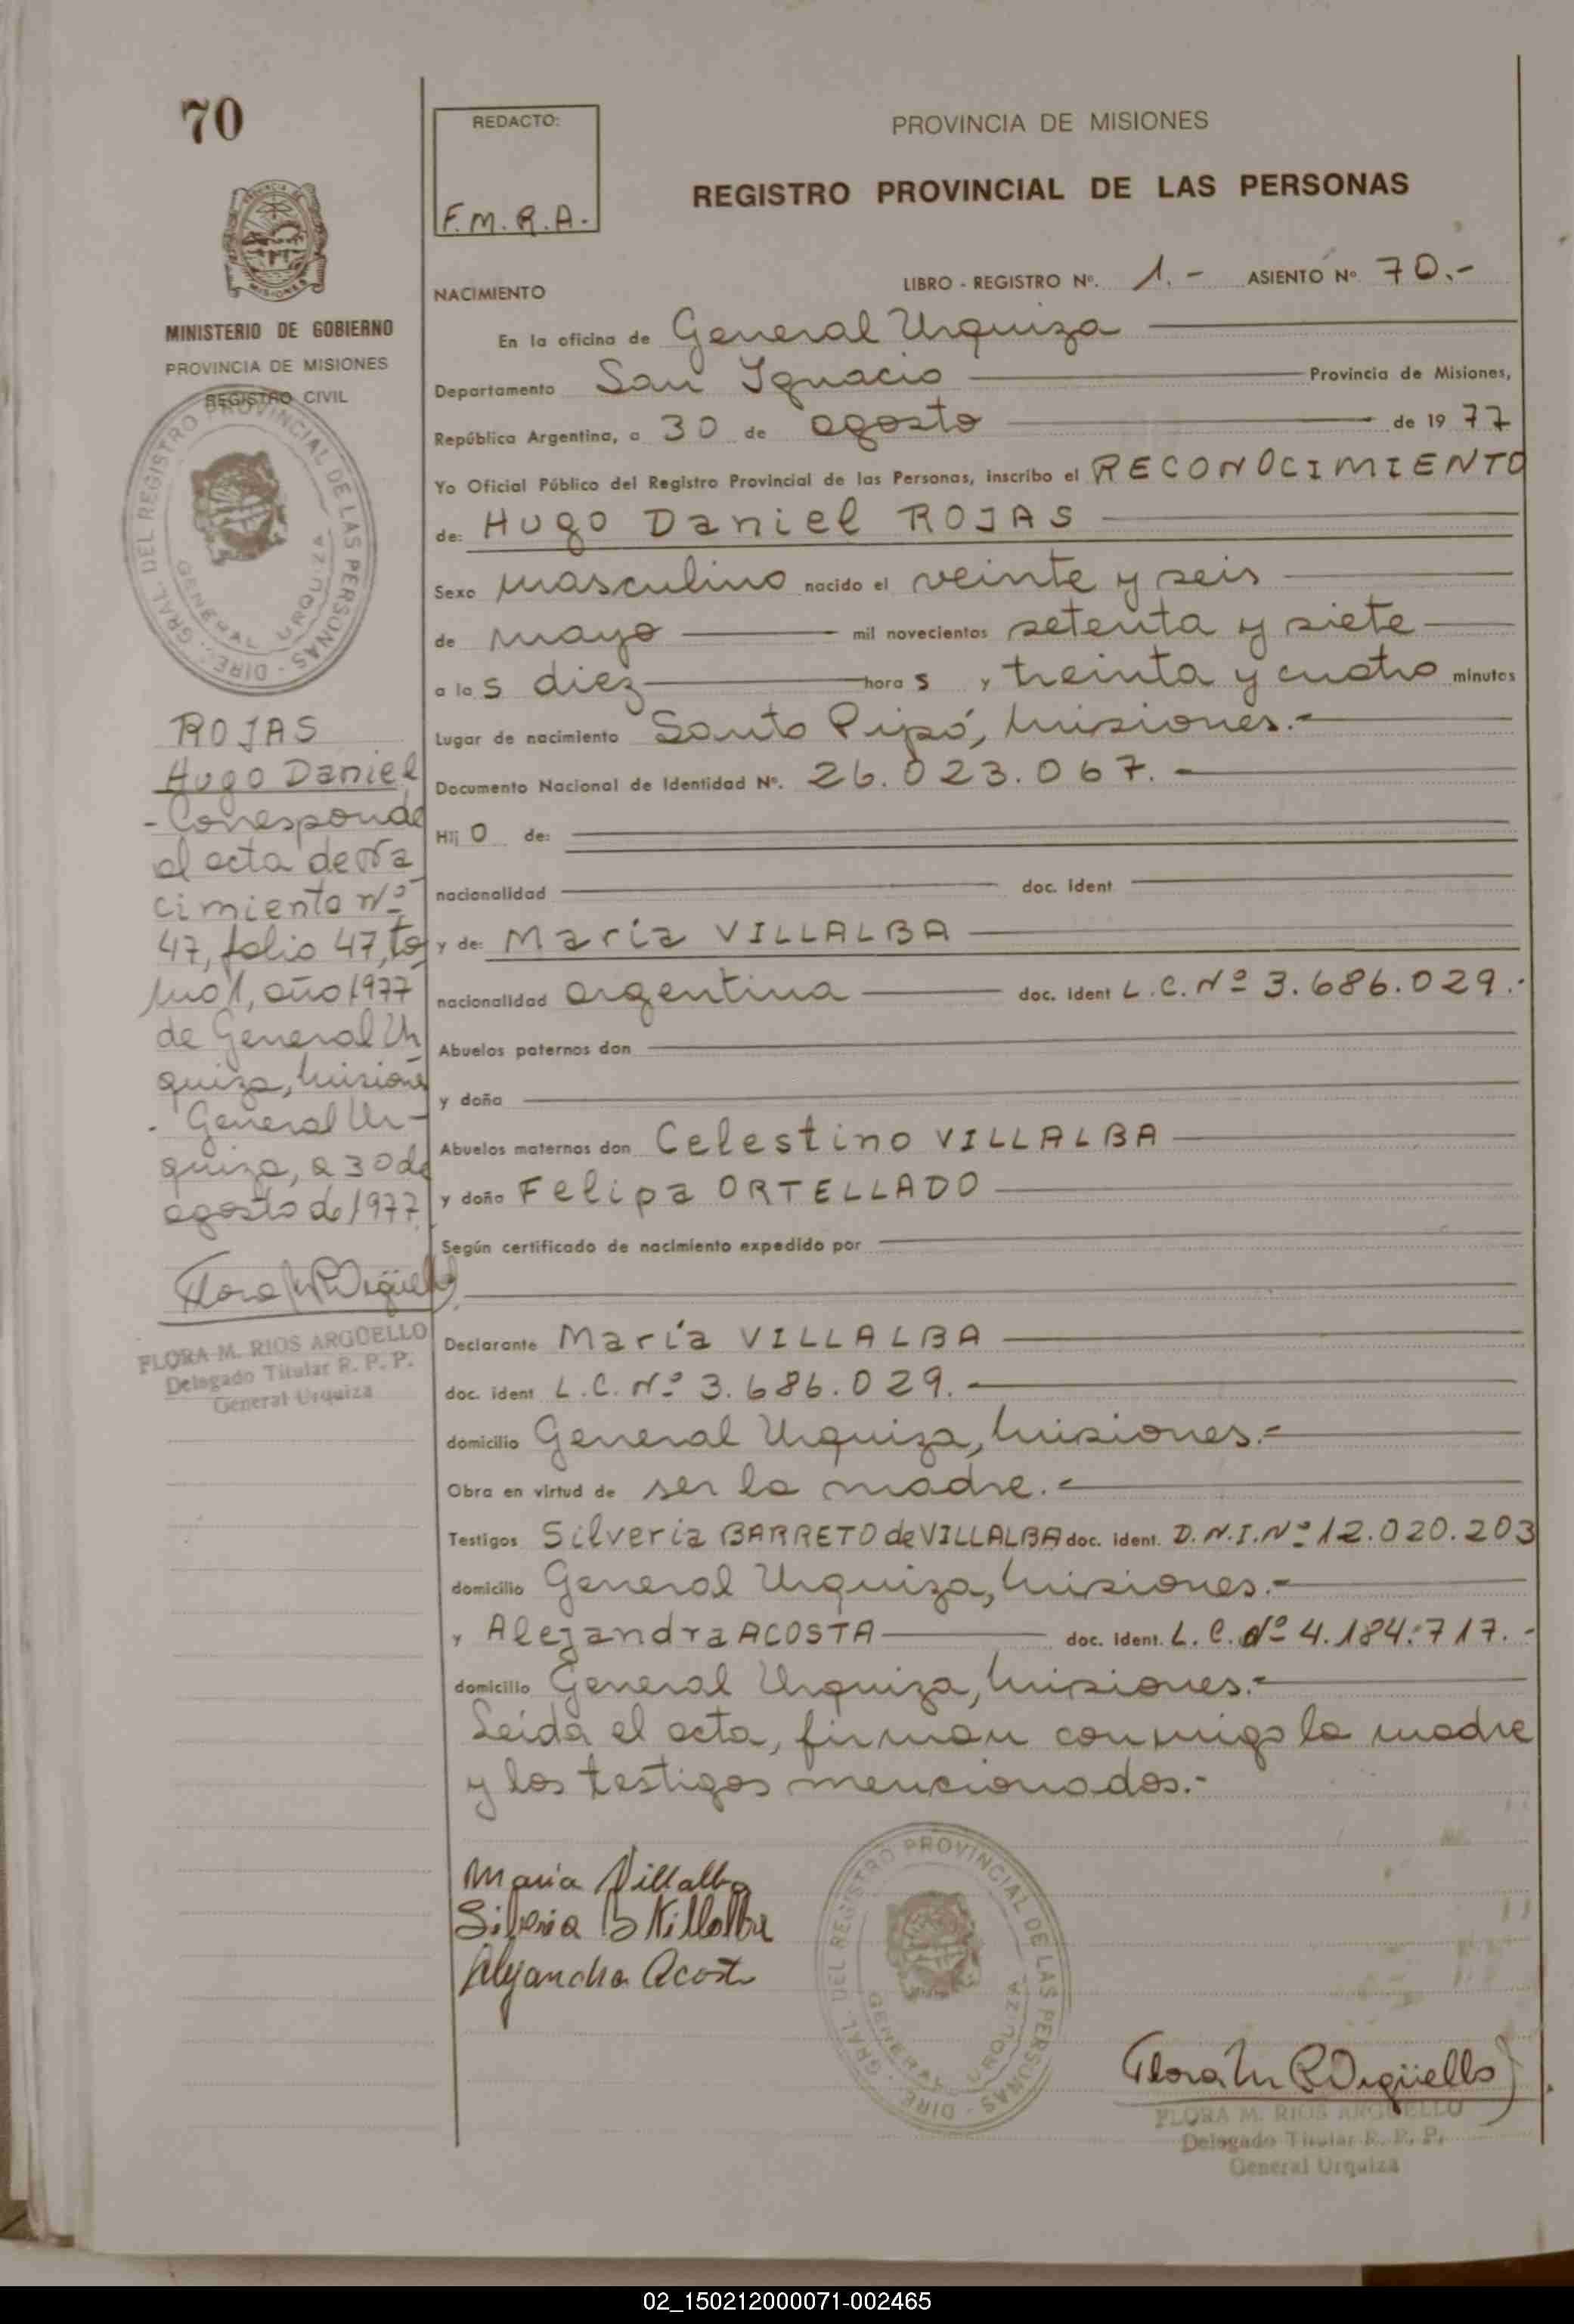 70
REDACTO:
F.M.R.A.
PROVINCIA DE MISIONES
REGISTRO PROVINCIAL DE LAS PERSONAS
LIBRO - REGISTRO Nº. 1.- ASIENTO Nº 70.-
NACIMIENTO
En la oficina de General Urquiza
Departamento San Ignacio Provincia de Misiones,
República Argentina, a 30 de agosto de 1977
Yo Oficial Público del Registro Provincial de las Personas, inscribo el RECONOCIMIENTO
de: Hugo Daniel ROJAS
Sexo masculino nacido el veinte y seis
de mayo mil novecientos setenta y siete
a las diez horas y treinta y cuatro minutos
Lugar de nacimiento Santo Pipó, Misiones.-
Documento Nacional de Identidad Nº. 26.023.067.-
Hijo de:
nacionalidad doc. ident
y de: María VILLALBA
nacionalidad argentina doc. ident L.C. Nº 3.686.029.-
Abuelos paternos don
y doña
Abuelos maternos don Celestino VILLALBA
y doña Felipa ORTELLADO
Según certificado de nacimiento expedido por
Declarante María VILLALBA
doc. ident L.C. Nº 3.686.029.-
domicilio General Urquiza, Misiones.-
Obra en virtud de ser la madre.-
Testigos Silveria BARRETO de VILLALBA doc. ident. D.N.I. Nº 12.020.203
domicilio General Urquiza, Misiones.-
y Alejandra ACOSTA doc. ident. L.C. Nº 4.184.717.-
domicilio General Urquiza, Misiones.-
Leída el acta, firman conmigo la madre
y los testigos mencionados.-
María Villalba
Silveria B Villalba
Alejandra Acosta
DIRE. GRAL. DEL REGISTRO PROVINCIAL DE LAS PERSONAS
GENERAL URQUIZA
Flora M R Argüello
FLORA M. RIOS ARGÜELLO
Delegado Titular R. P. P.
General Urquiza
MISIONES
MINISTERIO DE GOBIERNO
PROVINCIA DE MISIONES
REGISTRO CIVIL
DIRE. GRAL. DEL REGISTRO PROVINCIAL DE LAS PERSONAS
GENERAL URQUIZA
ROJAS
Hugo Daniel
- Corresponde
al acta de Na
cimiento Nº
47, folio 47, to
mo 1, año 1977
de General Ur
quiza, Misiones
- General Ur-
quiza, a 30 de
agosto de 1977.
Flora M R Argüello
FLORA M. RIOS ARGÜELLO
Delegado Titular R. P. P.
General Urquiza
02_150212000071-002465